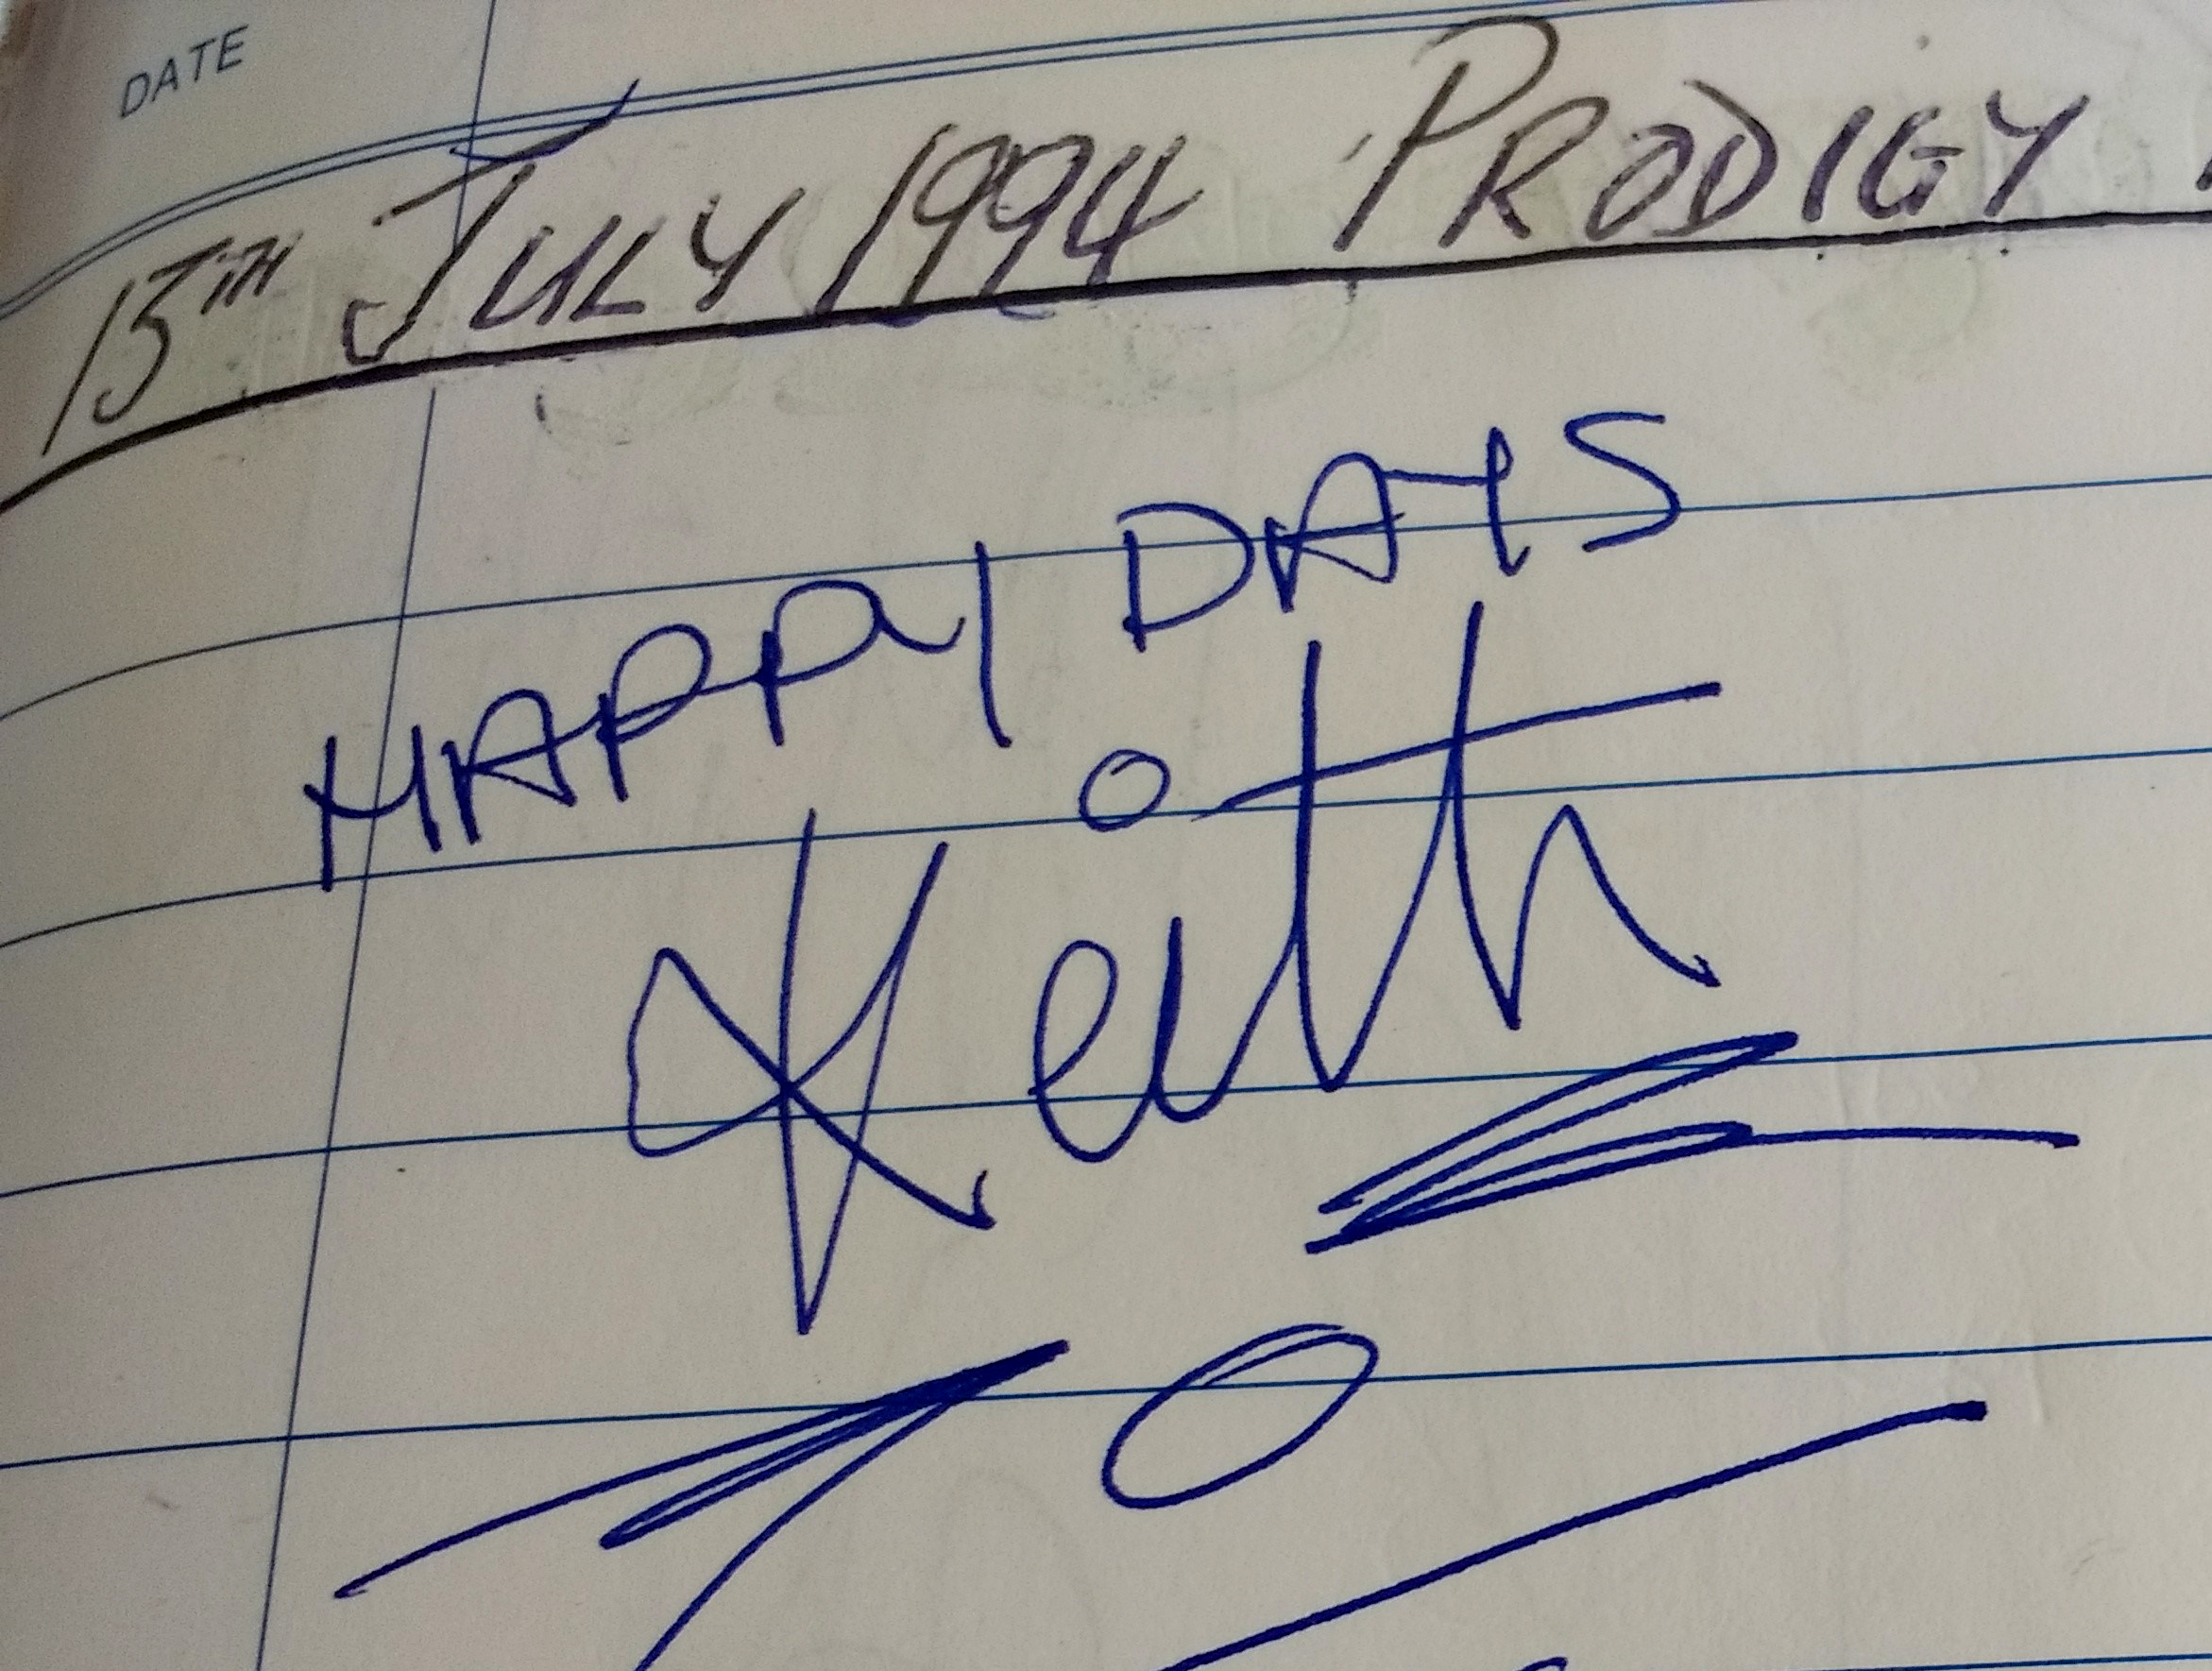 DATE
15TH JULY 1994 PRODIGY
HAPPY DAYS
Keith